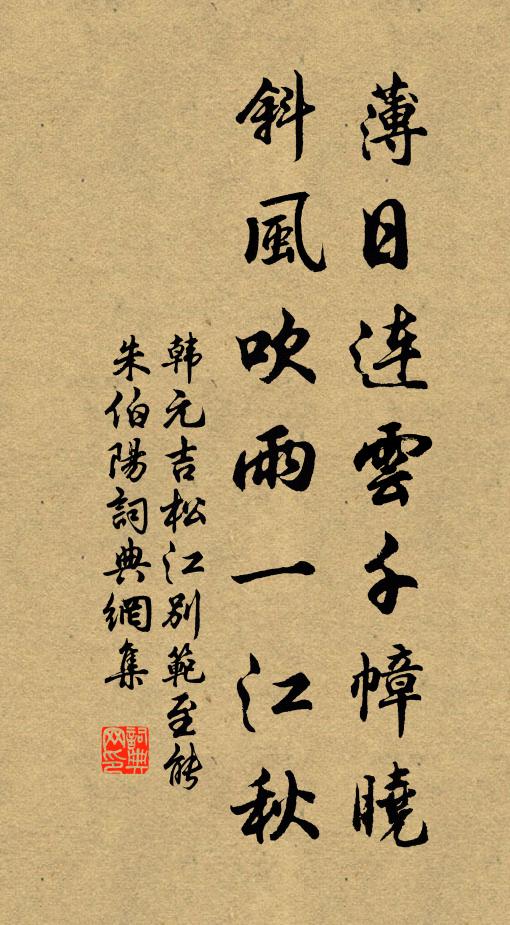 薄日连雲千幛曉
斜風吹雨一江秋
韩元吉松江别範至能
朱伯陽詞典網集
詞典网印